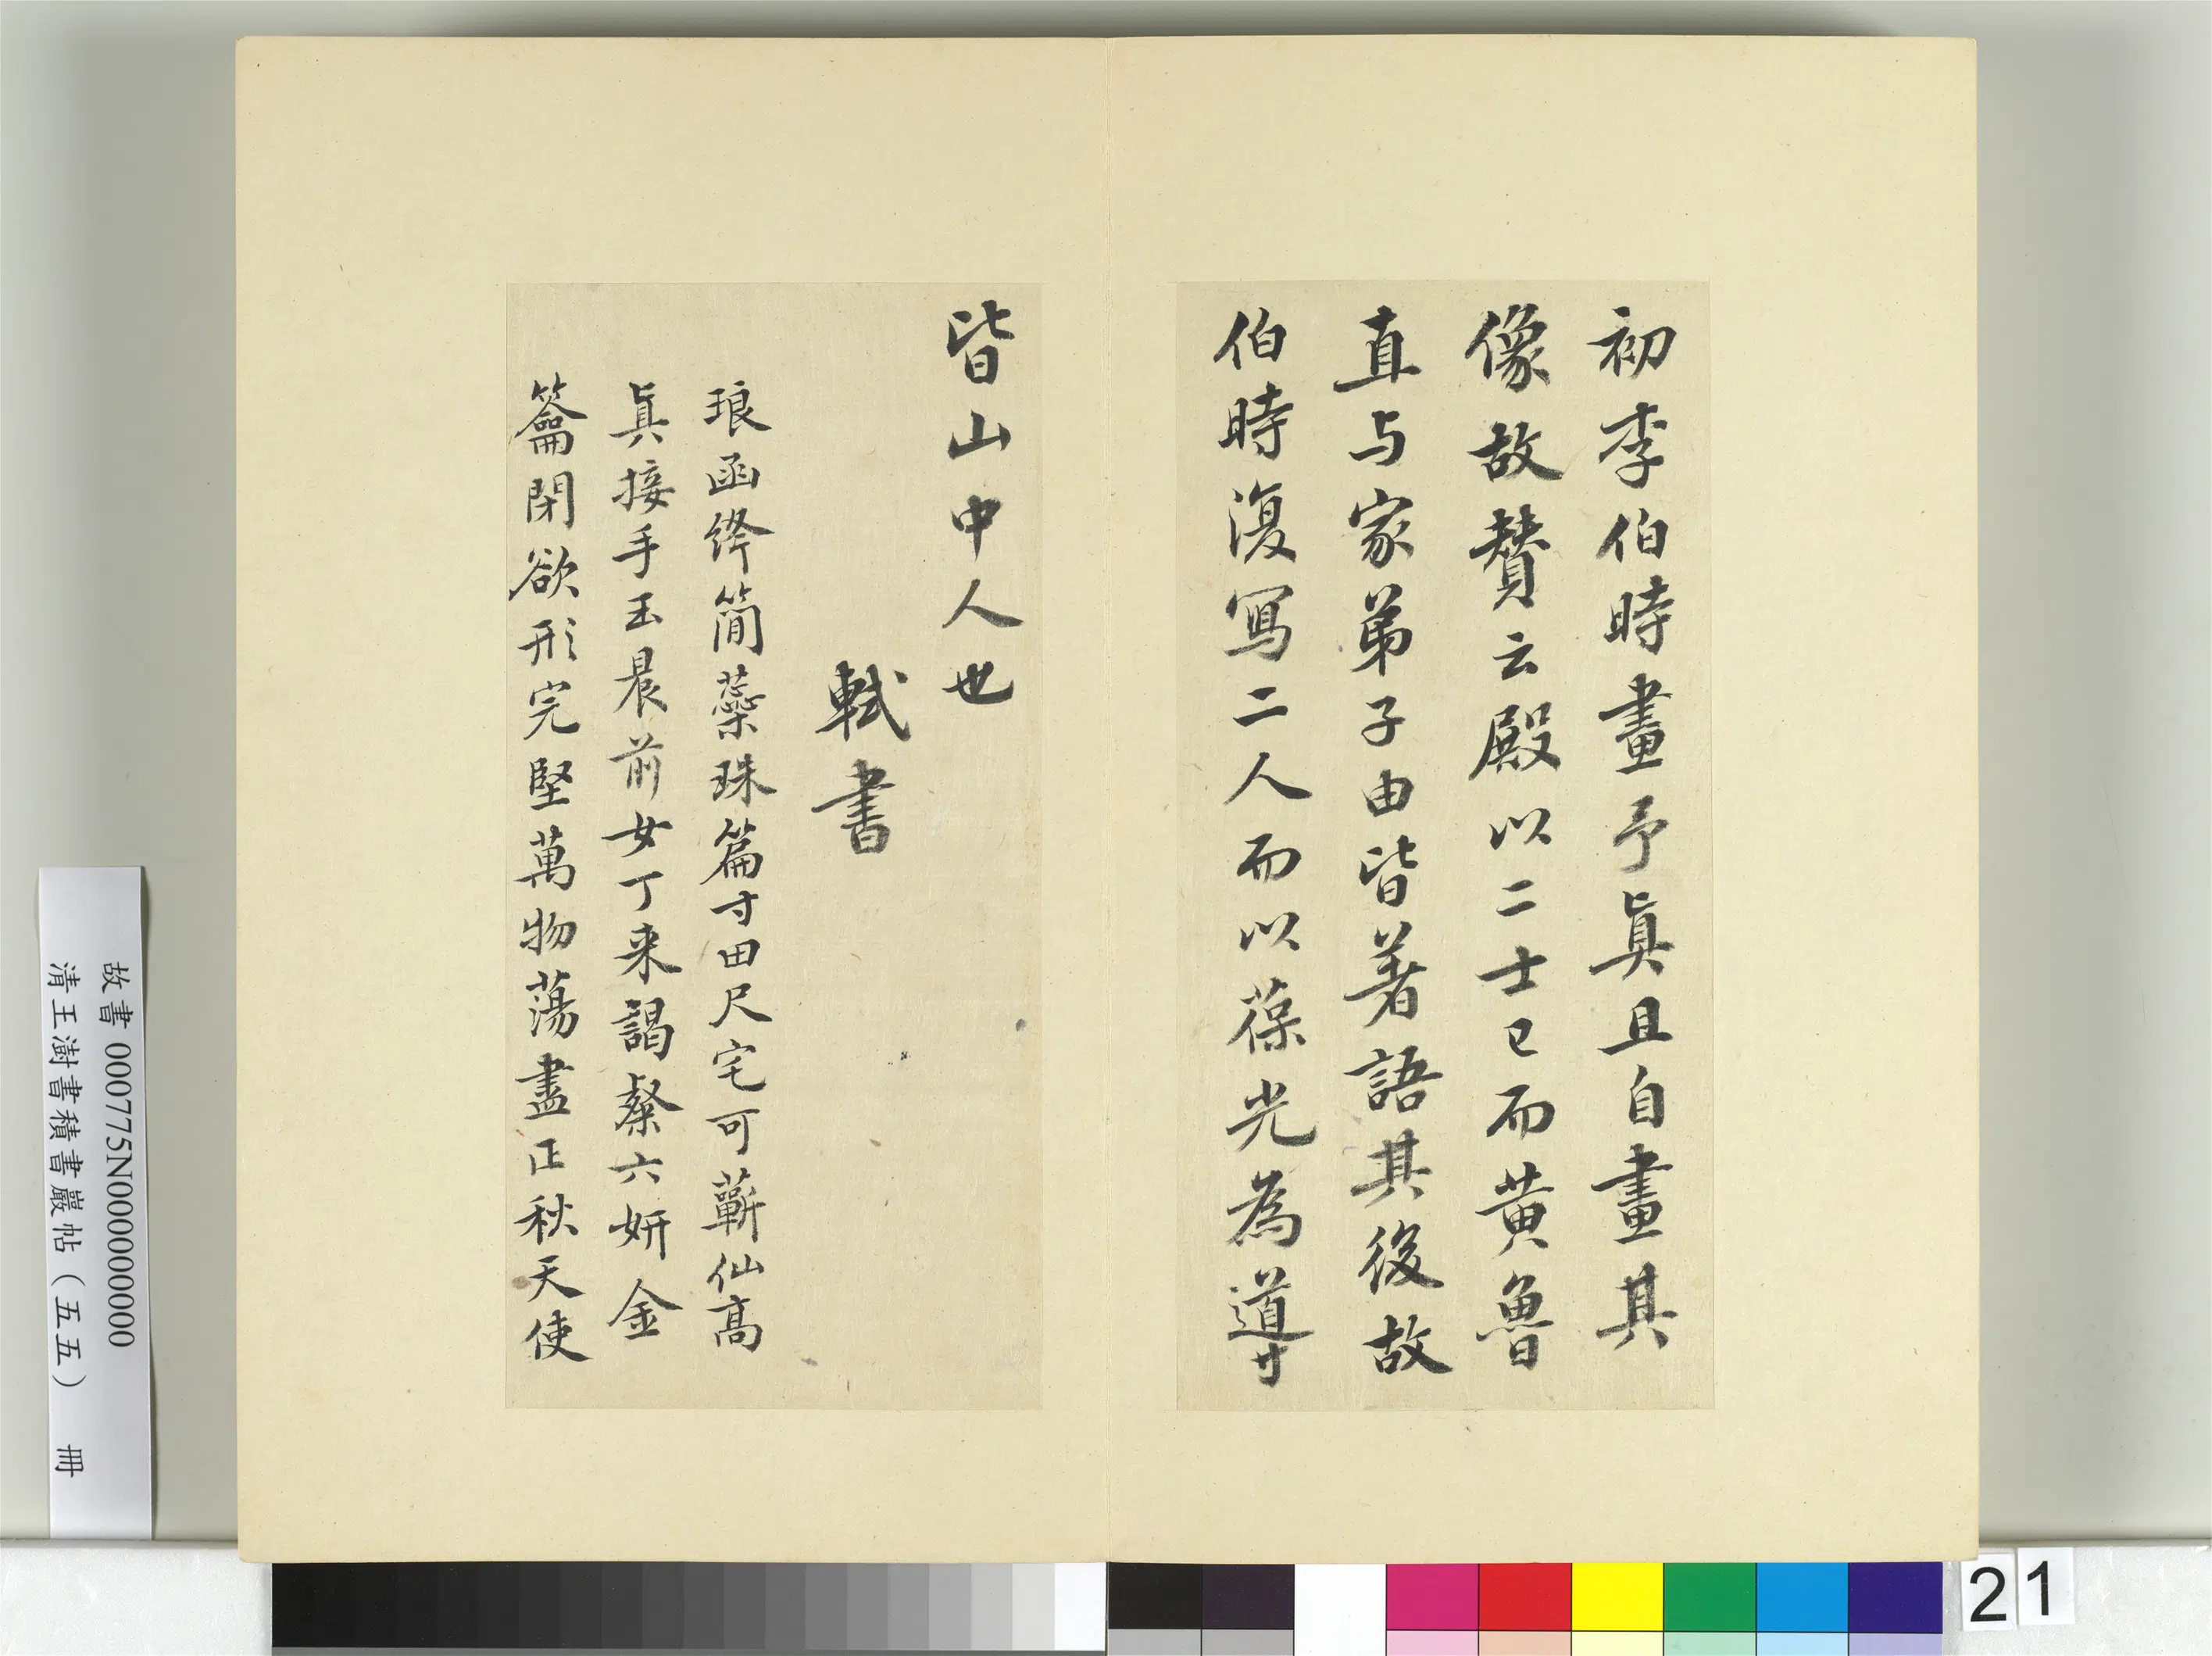 初李伯時畫予眞且自畫其
像故賛云殿以二士已而黄魯
直与家弟子由皆著語其後故
伯時復寫二人而以葆光為導
皆山中人也
軾書
琅函絳簡蘂珠篇寸田尺宅可蘄仙髙
眞接手玉晨前女丁来謁粲六妍金
籥閉欲形完堅萬物蕩盡正秋天使
故書 000775N000000000
清王澍書積書巖帖（五五） 冊
21